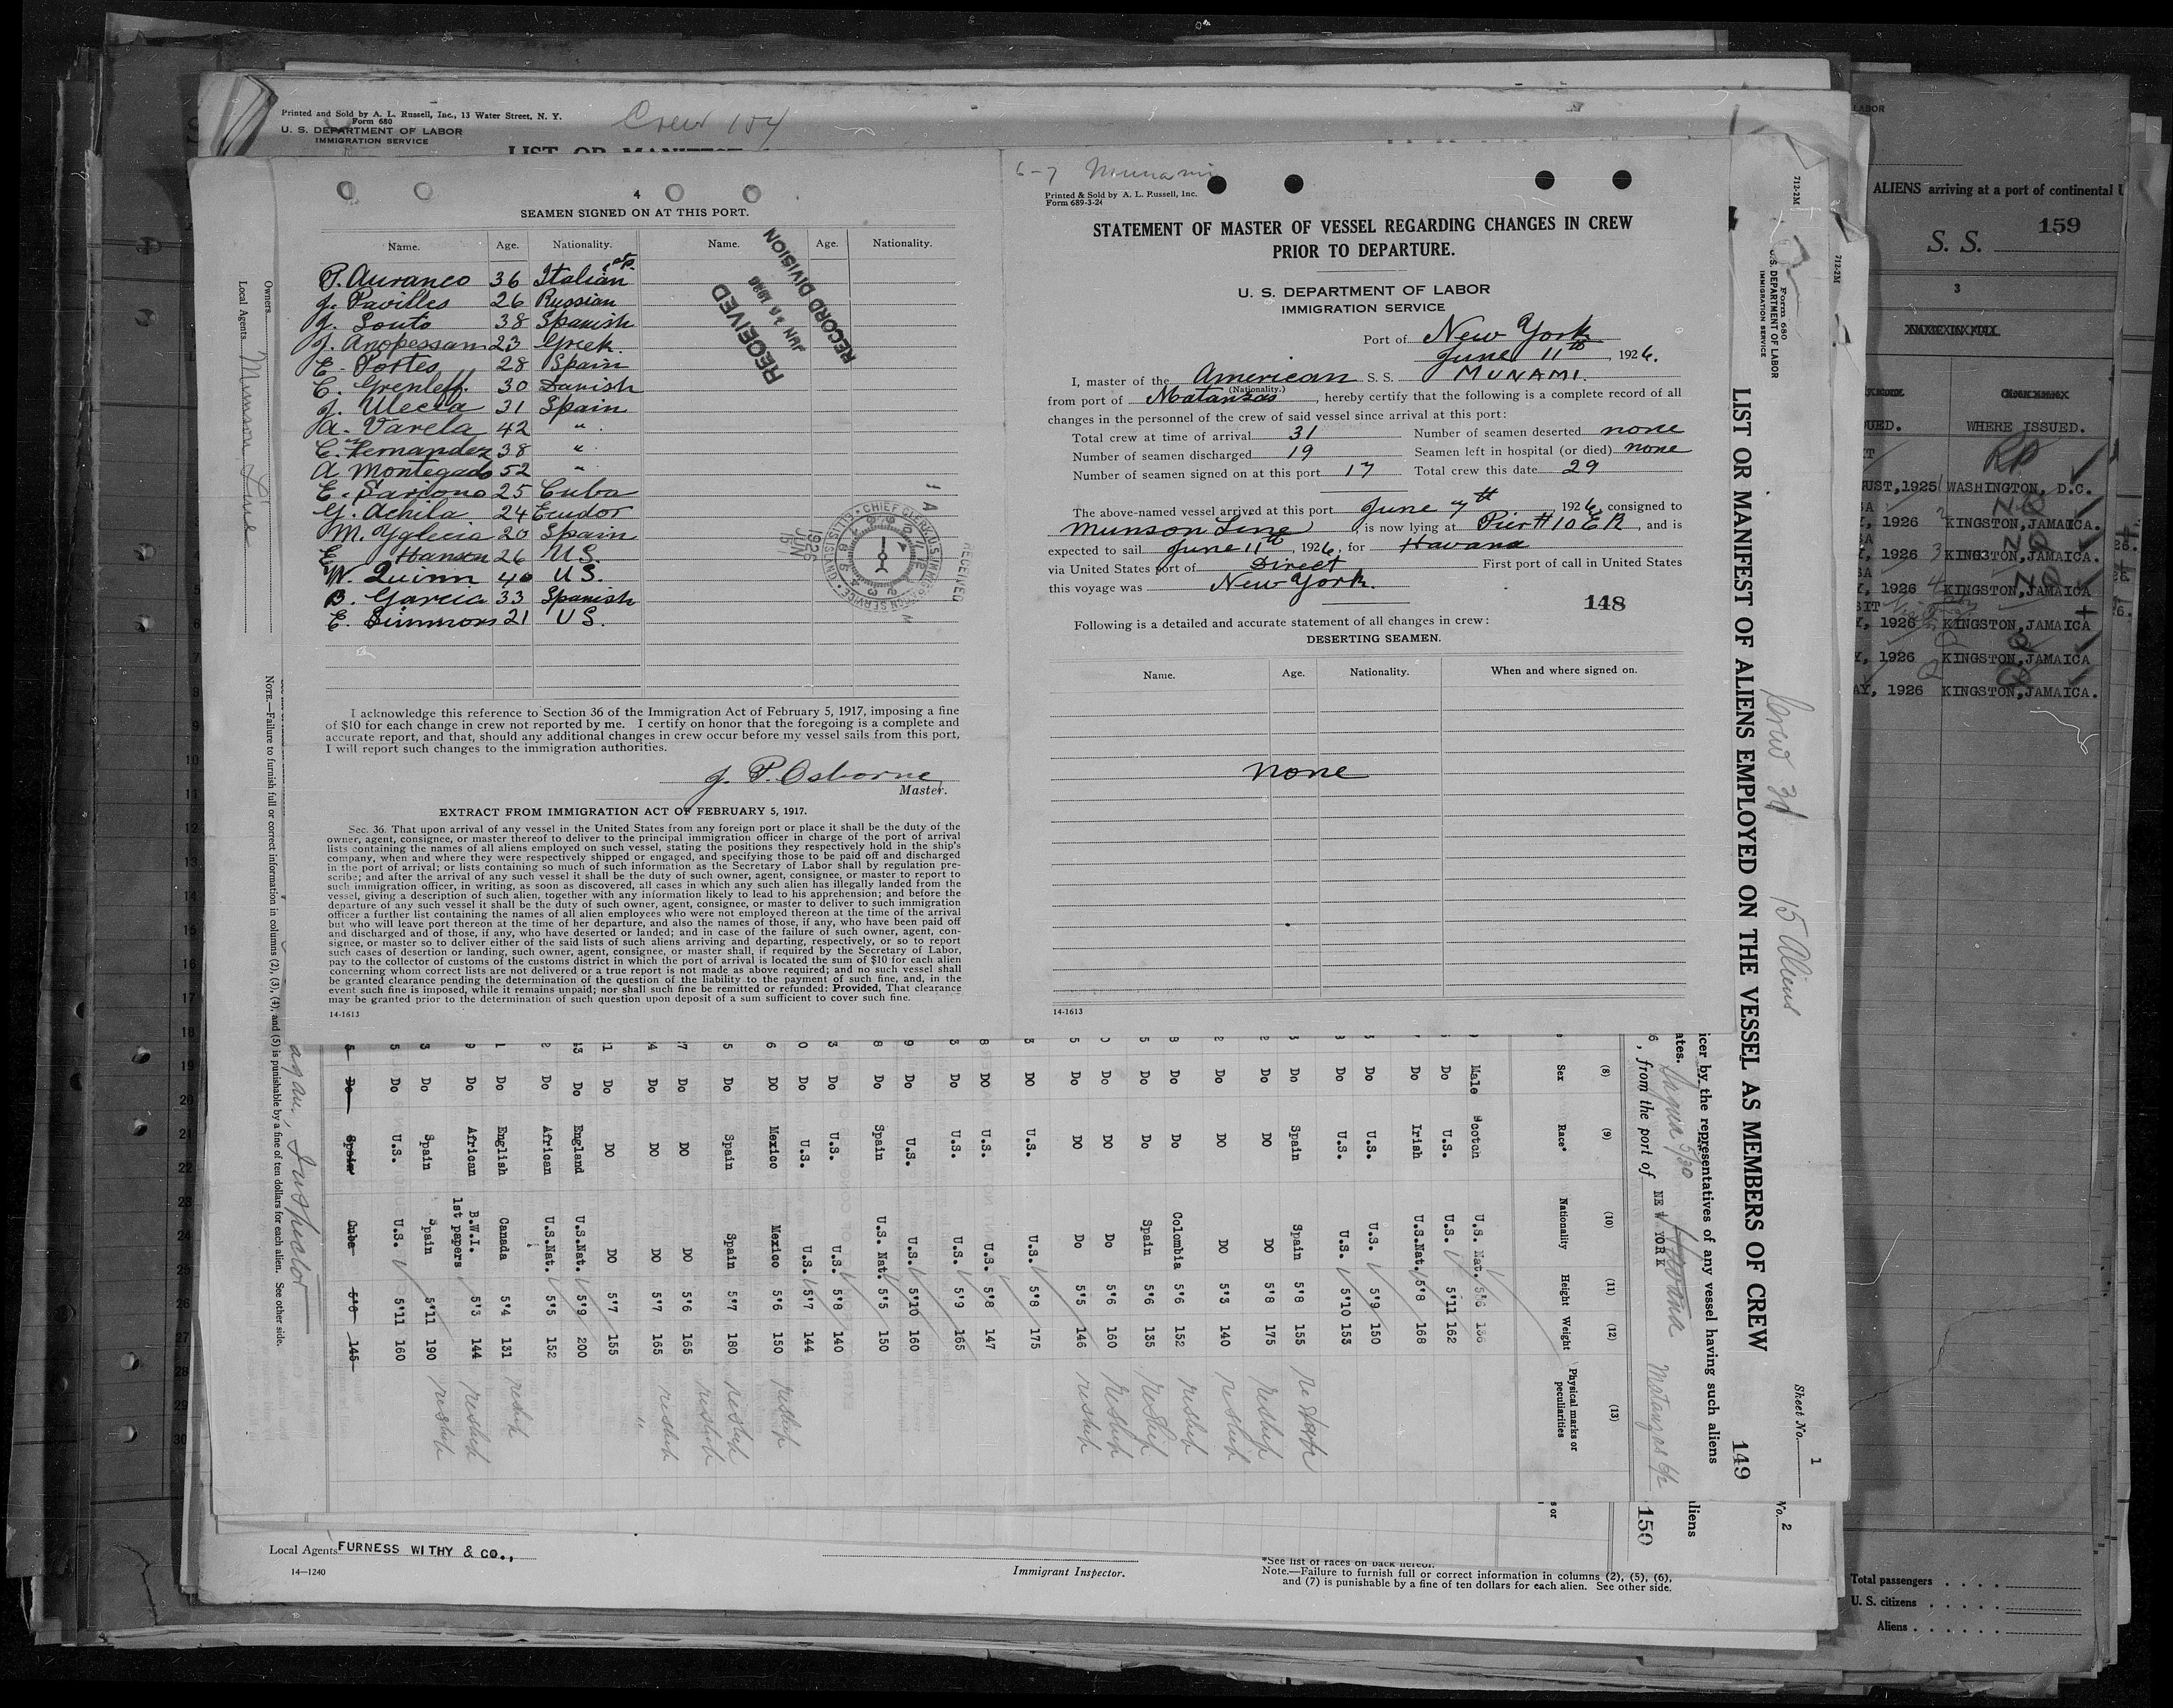 Printed and Sold by A. L. Russell, Inc., 13 Water Street, N. Y.
Form 680
U. S. DEPARTMENT OF LABOR
IMMIGRATION SERVICE
Crew 104
4
SEAMEN SIGNED ON AT THIS PORT.
Name. Age. Nationality. Name. Age. Nationality.
P. Auranco 36 Italian
J. Pavilles 26 Russian
J. Souto 38 Spanish
J. Anopessam 23 Greek.
E. Portes 28 Spain
C. Grenleff. 30 Danish
J. Ulecia 31 Spain
A. Varela 42 "
E. Fernandez 38 "
A Montegado 52 "
E. Sariono 25 Cuba
G. Achila 24 Ecudor
M. Yglecia 20 Spain
E. Hansen 26 U.S.
W. Quinn 40 U.S.
B. Garcia 33 Spanish
E. Simmons 21 U S.
RECEIVED
JUN 16 1926
RECORD DIVISION
1926
JUN
15
RECEIVED
I acknowledge this reference to Section 36 of the Immigration Act of February 5, 1917, imposing a fine
of $10 for each change in crew not reported by me. I certify on honor that the foregoing is a complete and
accurate report, and that, should any additional changes in crew occur before my vessel sails from this port,
I will report such changes to the immigration authorities.
J. P. Osborne
Master.
EXTRACT FROM IMMIGRATION ACT OF FEBRUARY 5, 1917.
Sec. 36. That upon arrival of any vessel in the United States from any foreign port or place it shall be the duty of the
owner, agent, consignee, or master thereof to deliver to the principal immigration officer in charge of the port of arrival
lists containing the names of all aliens employed on such vessel, stating the positions they respectively hold in the ship's
company, when and where they were respectively shipped or engaged, and specifying those to be paid off and discharged
in the port of arrival; or lists containing so much of such information as the Secretary of Labor shall by regulation pre-
scribe; and after the arrival of any such vessel it shall be the duty of such owner, agent, consignee, or master to report to
such immigration officer, in writing, as soon as discovered, all cases in which any such alien has illegally landed from the
vessel, giving a description of such alien, together with any information likely to lead to his apprehension; and before the
departure of any such vessel it shall be the duty of such owner, agent, consignee, or master to deliver to such immigration
officer a further list containing the names of all alien employees who were not employed thereon at the time of the arrival
but who will leave port thereon at the time of her departure, and also the names of those, if any, who have been paid off
and discharged and of those, if any, who have deserted or landed; and in case of the failure of such owner, agent, con-
signee, or master so to deliver either of the said lists of such aliens arriving and departing, respectively, or so to report
such cases of desertion or landing, such owner, agent, consignee, or master shall, if required by the Secretary of Labor,
pay to the collector of customs of the customs district in which the port of arrival is located the sum of $10 for each alien
concerning whom correct lists are not delivered or a true report is not made as above required; and no such vessel shall
be granted clearance pending the determination of the question of the liability to the payment of such fine, and, in the
event such fine is imposed, while it remains unpaid; nor shall such fine be remitted or refunded: Provided, That clearance
may be granted prior to the determination of such question upon deposit of a sum sufficient to cover such fine.
14-1613
6-7 Munami
Printed & Sold by A. L. Russell, Inc.
Form 689-3-24
STATEMENT OF MASTER OF VESSEL REGARDING CHANGES IN CREW
PRIOR TO DEPARTURE.
U. S. DEPARTMENT OF LABOR
IMMIGRATION SERVICE
Port of New York
June 11th, 1926.
I, master of the American S. S. MUNAMI.
(Nationality.)
from port of Matanzas, hereby certify that the following is a complete record of all
changes in the personnel of the crew of said vessel since arrival at this port:
Total crew at time of arrival 31 Number of seamen deserted none
Number of seamen discharged 19 Seamen left in hospital (or died) none
Number of seamen signed on at this port 17 Total crew this date 29
The above-named vessel arrived at this port June 7th 1926, consigned to
Munson Line, is now lying at Pier #10 E R, and is
expected to sail June 11th, 1926, for Havana
via United States port of Direct First port of call in United States
this voyage was New York.
148
Following is a detailed and accurate statement of all changes in crew:
DESERTING SEAMEN.
Name. Age. Nationality. When and where signed on.
none
14-1613
Owners
Local Agents Munson Line
NOTE.—Failure to furnish full or correct information in columns (2), (3), (4), and (5) is punishable by a fine of ten dollars for each alien. See other side.
Inspector
712-2M
Form 680
U.S. DEPARTMENT OF LABOR
IMMIGRATION SERVICE
LIST OR MANIFEST OF ALIENS EMPLOYED ON THE VESSEL AS MEMBERS OF CREW
Crew 31 15 Aliens
Sheet No. 1
149
icer by the representatives of any vessel having such aliens
, from the port of NEW YORK Havana Matanzas
(8) (9) (10) (11) (12) (13)
Sex Race* Nationality Height Weight Physical marks or peculiarities
Male Scotch U.S. Nat. 5'6
Do U.S. U.S. 5'11 162
Do Irish U.S.Nat. 5'8 168
Do U.S. U.S. 5'9 150
Do U.S. U.S. 5'10 153
Do Spain Spain 5'8 155
Do DO DO 5'8 175 reship
Do DO DO 5'3 140 reship
Do Do Colombia 5'6 152 reship
Do Do Spain 5'6 135 reship
Do DO Do 5'6 160 reship
Do DO Do 5'5 146 reship
Do U.S. U.S. 5'8 175
DO U.S. U.S. 5'8 147
Do U.S. U.S. 5'9 165
Do U.S. U.S. 5'10 160
Do Spain U.S. Nat. 5'5 150
Do U.S. U.S. 5'8 140
Do U.S. U.S. 5'7 144
DO Mexico Mexico 5'6 150 reship
Do Spain Spain 5'7 180 reship
Do DO DO 5'6 165 reship
Do DO DO 5'7 165 reship
Do DO DO 5'7 155 "
Do England U.S.Nat. 5'9 200
Do African U.S.Nat. 5'5 152
Do English Canada 5'4 131 reship
Do African B.W.I. 1st papers 5'3 144 reship
Do Spain Spain 5'11 190 reship
Do U.S. U.S. 5'11 160
Do Spain Cuba 5'6 145
No. 2
150
Local Agents FURNESS WITHY & CO.,
14—1240
Immigrant Inspector.
*See list of races on back hereof.
Note.—Failure to furnish full or correct information in columns (2), (5), (6),
and (7) is punishable by a fine of ten dollars for each alien. See other side.
ALIENS arriving at a port of continental U
S. S. 159
3
WHERE ISSUED.
RP
UST, 1925 WASHINGTON, D.C.
, 1926 KINGSTON, JAMAICA.
, 1926 KINGSTON, JAMAICA.
, 1926 KINGSTON, JAMAICA
, 1926 KINGSTON, JAMAICA
Y, 1926 KINGSTON, JAMAICA
AY, 1926 KINGSTON, JAMAICA.
Total passengers
U. S. citizens
Aliens